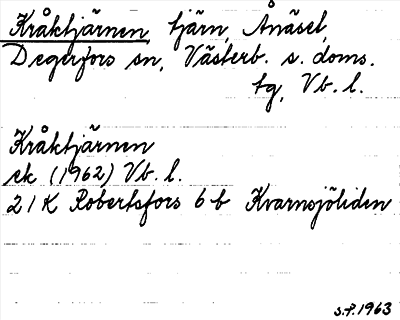 Kråktjärnen, tjärn, Ånäset,
Degerfors sn, Västerb. s. doms.
tg, Vb. l.
Kråktjärnen
ek (1962) Vb. l.
21 K Robertsfors 6 b Kvarnsjöliden
S.P. 1963